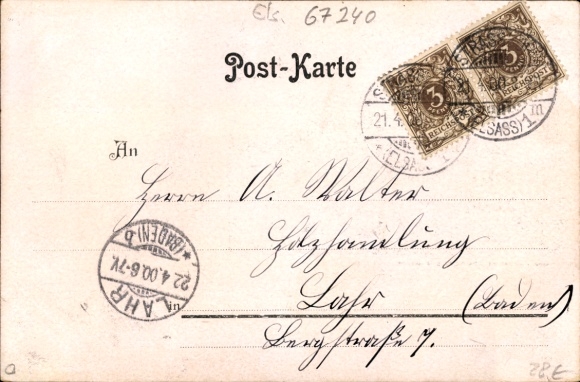 Els. 67240
Post-Karte
3 REICHSPOST
3 REICHSPOST
STRASSB
21.4.00
*(ELSASS) 1 m
An
Herrn A. Walter
Holzhandlung
in Lahr (Baden)
Bergstraße 7.
*(BADEN) b
22.4.00. 6-7V.
LAHR
28,€